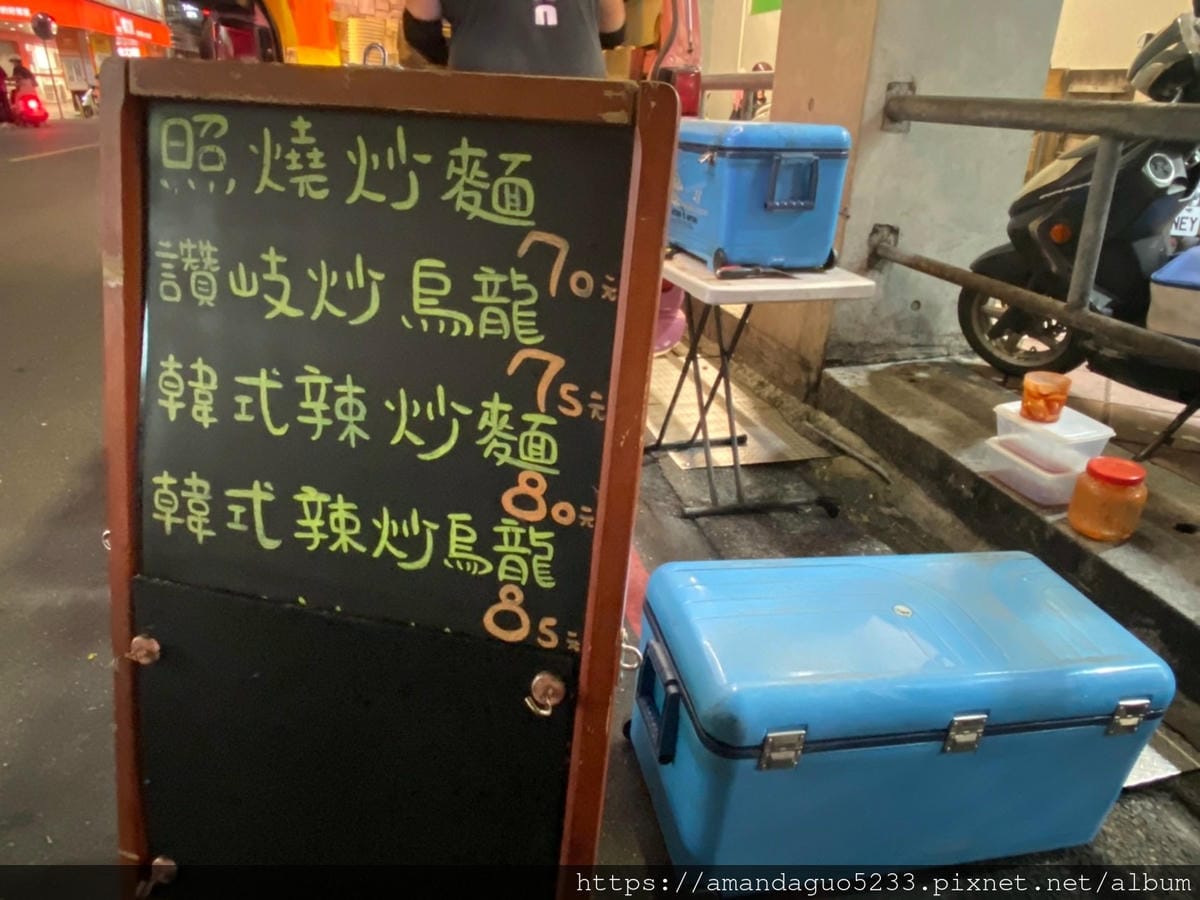 照燒炒麵
70元
讚岐炒烏龍
75元
韓式辣炒麵
80元
韓式辣炒烏龍
85元
NEY
https://amandaguo5233.pixnet.net/album